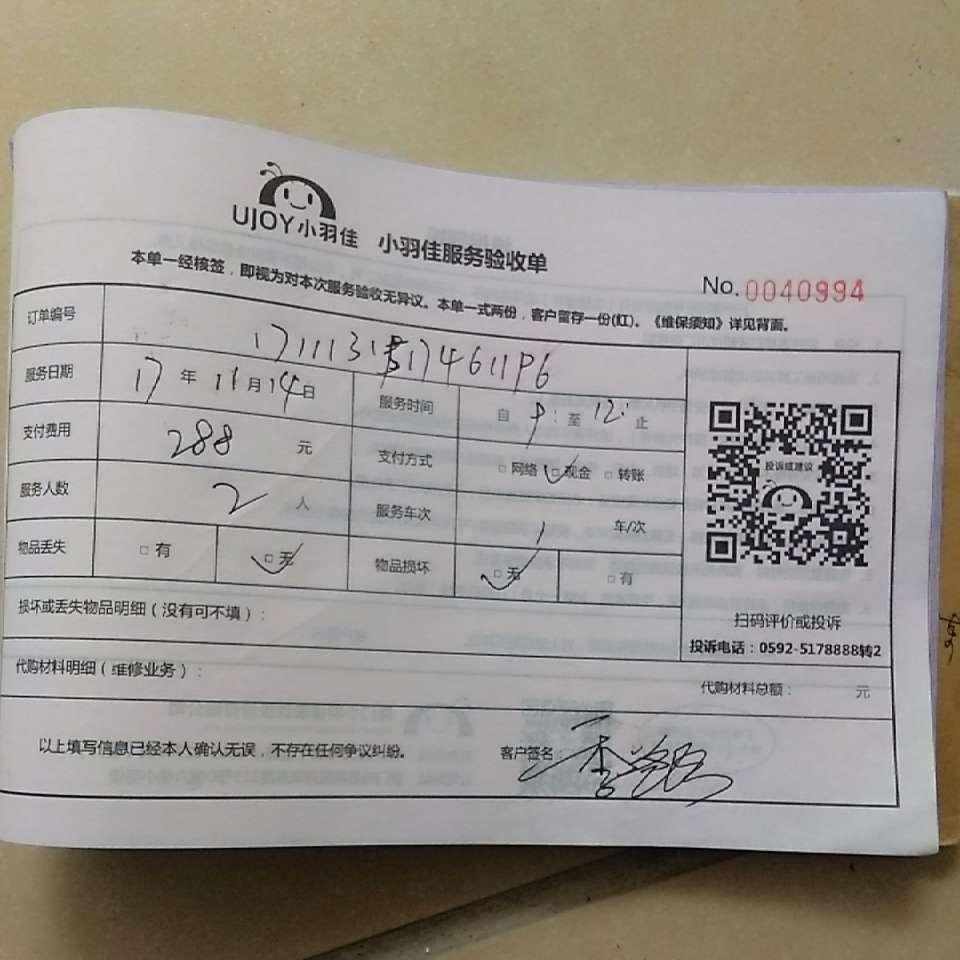 UJOY小羽佳 小羽佳服务验收单
No.0040994
本单一经核签，即视为对本次服务验收无异议。本单一式两份，客户留存一份(红)。《维保须知》详见背面。
订单编号
服务日期 17 年 11 月 14 日 服务时间 自 9 : 至 12 : 止
支付费用 288 元 支付方式 □ 网络 □ 现金 □ 转账
服务人数 2 人 服务车次 1 车/次
物品丢失 □ 有 □ 无 物品损坏 □ 无 □ 有
投诉或建议
扫码评价或投诉
投诉电话：0592-5178888转2
损坏或丢失物品明细（没有可不填）：
代购材料明细（维修业务）： 代购材料总额： 元
以上填写信息已经本人确认无误，不存在任何争议纠纷。 客户签名：